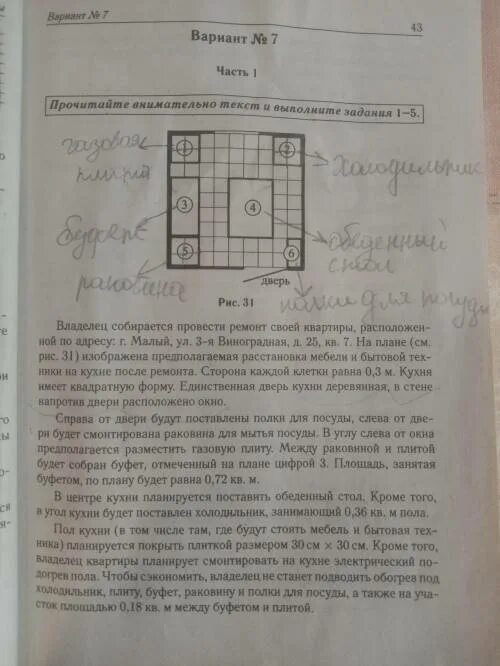 Вариант № 7
43
Вариант № 7
Часть 1
Прочитайте внимательно текст и выполните задания 1–5.
газовая
плита
холодильник
буфет
обеденный
стол
раковина
полки для посуды
1
2
3
4
5
6
дверь
Рис. 31
Владелец собирается провести ремонт своей квартиры, расположен-
ной по адресу: г. Малый, ул. 3-я Виноградная, д. 25, кв. 7. На плане (см.
рис. 31) изображена предполагаемая расстановка мебели и бытовой тех-
ники на кухне после ремонта. Сторона каждой клетки равна 0,3 м. Кухня
имеет квадратную форму. Единственная дверь кухни деревянная, в стене
напротив двери расположено окно.
Справа от двери будут поставлены полки для посуды, слева от две-
ри будет смонтирована раковина для мытья посуды. В углу слева от окна
предполагается разместить газовую плиту. Между раковиной и плитой
будет собран буфет, отмеченный на плане цифрой 3. Площадь, занятая
буфетом, по плану будет равна 0,72 кв. м.
В центре кухни планируется поставить обеденный стол. Кроме того,
в угол кухни будет поставлен холодильник, занимающий 0,36 кв. м пола.
Пол кухни (в том числе там, где будут стоять мебель и бытовая тех-
ника) планируется покрыть плиткой размером 30 см × 30 см. Кроме того,
владелец квартиры планирует смонтировать на кухне электрический по-
догрев пола. Чтобы сэкономить, владелец не станет подводить обогрев под
холодильник, плиту, буфет, раковину и полки для посуды, а также на уча-
сток площадью 0,18 кв. м между буфетом и плитой.